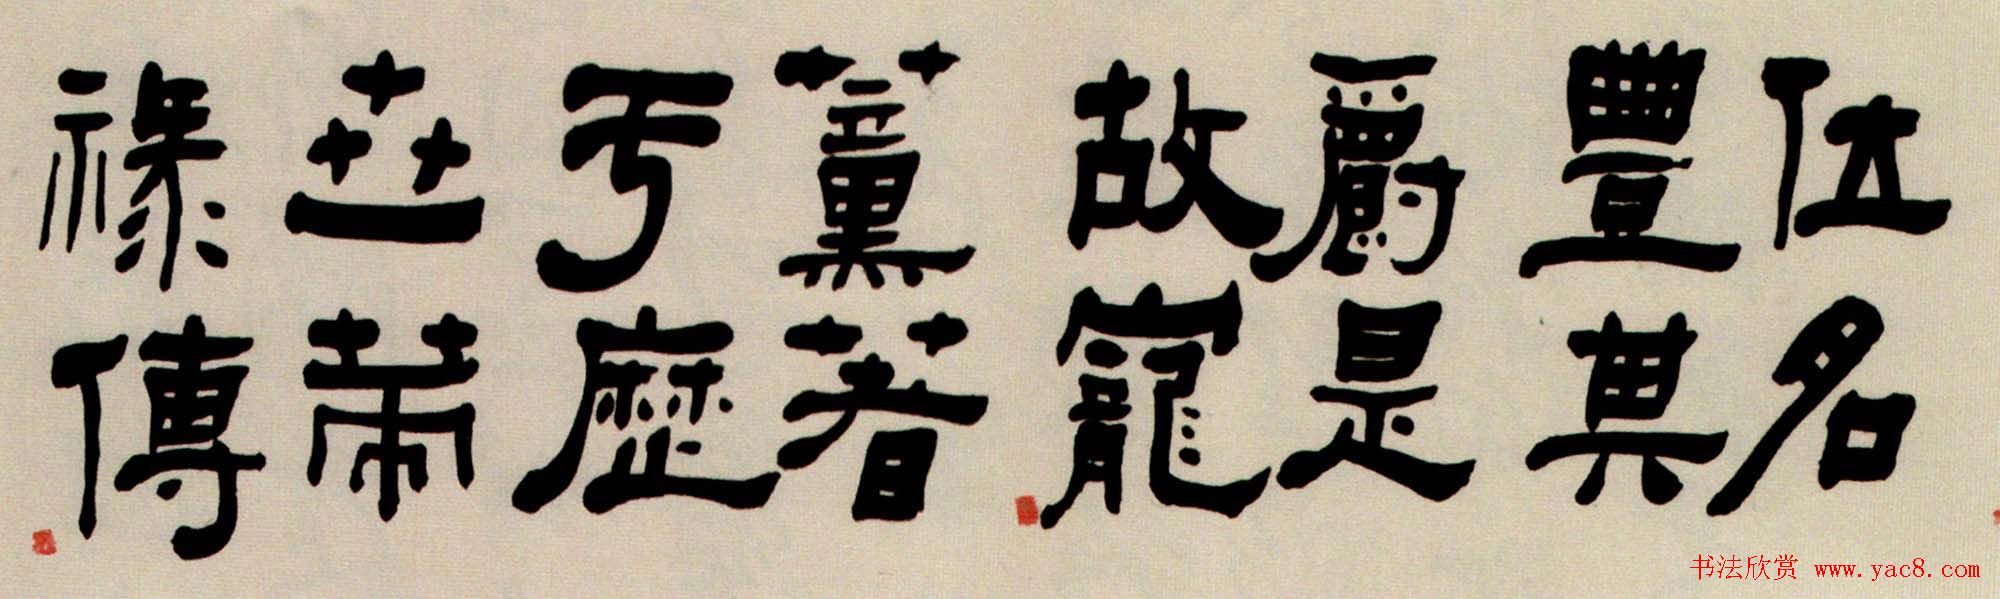 位名
豐其
爵是
故寵
薰著
于歷
世策
祿傳
书法欣赏 www.yac8.com